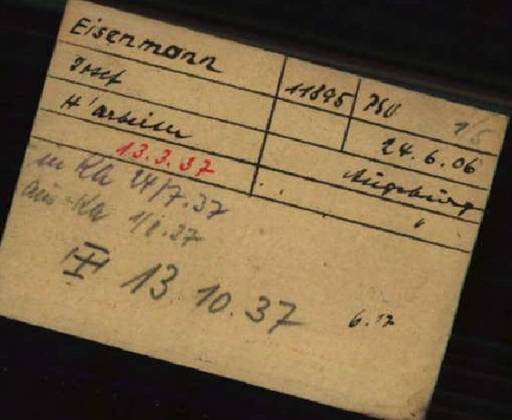 Eisenmann
Josef 11895 PSV 1/5
H'arbeiter 24.6.06
13.3.37 Augsburg
in Kla 24/7.37 "
aus Kla 1/8.37
III 13.10.37 6.17